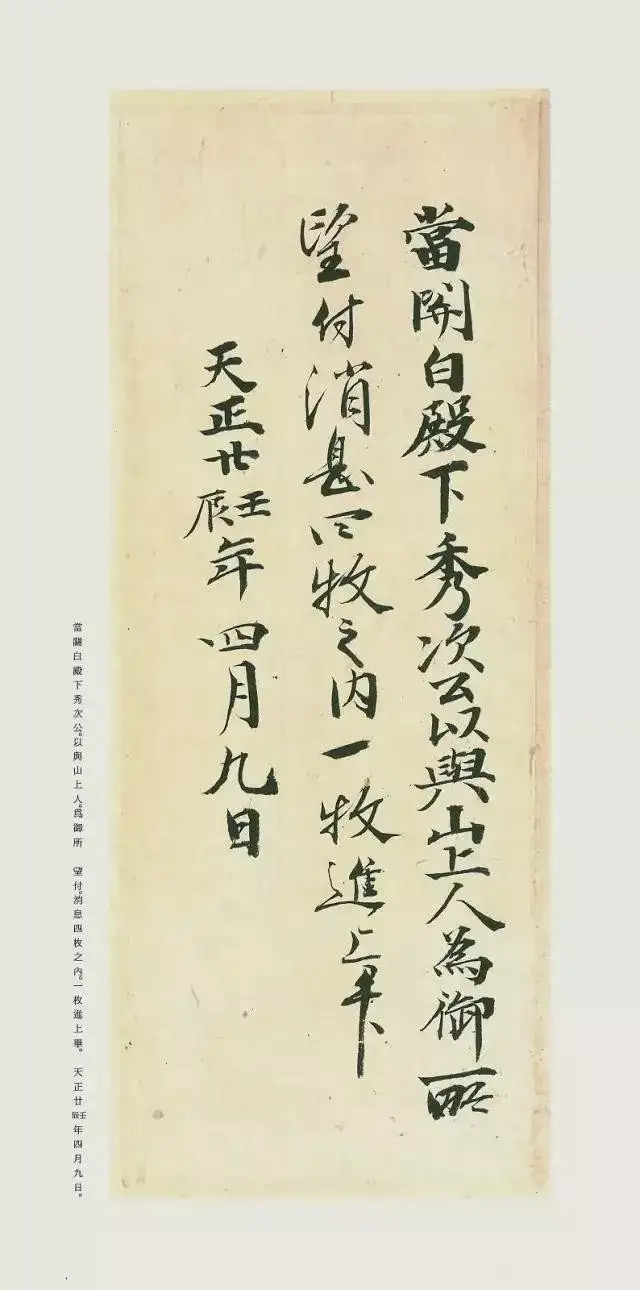 當関白殿下秀次公以與山上人為御所
望付消息四枚之内一枚進上畢
天正廿壬辰年四月九日
當關白殿下秀次公。以與山上人。爲御所　望付。消息四枚之內。一枚進上畢。　天正廿壬辰年四月九日。